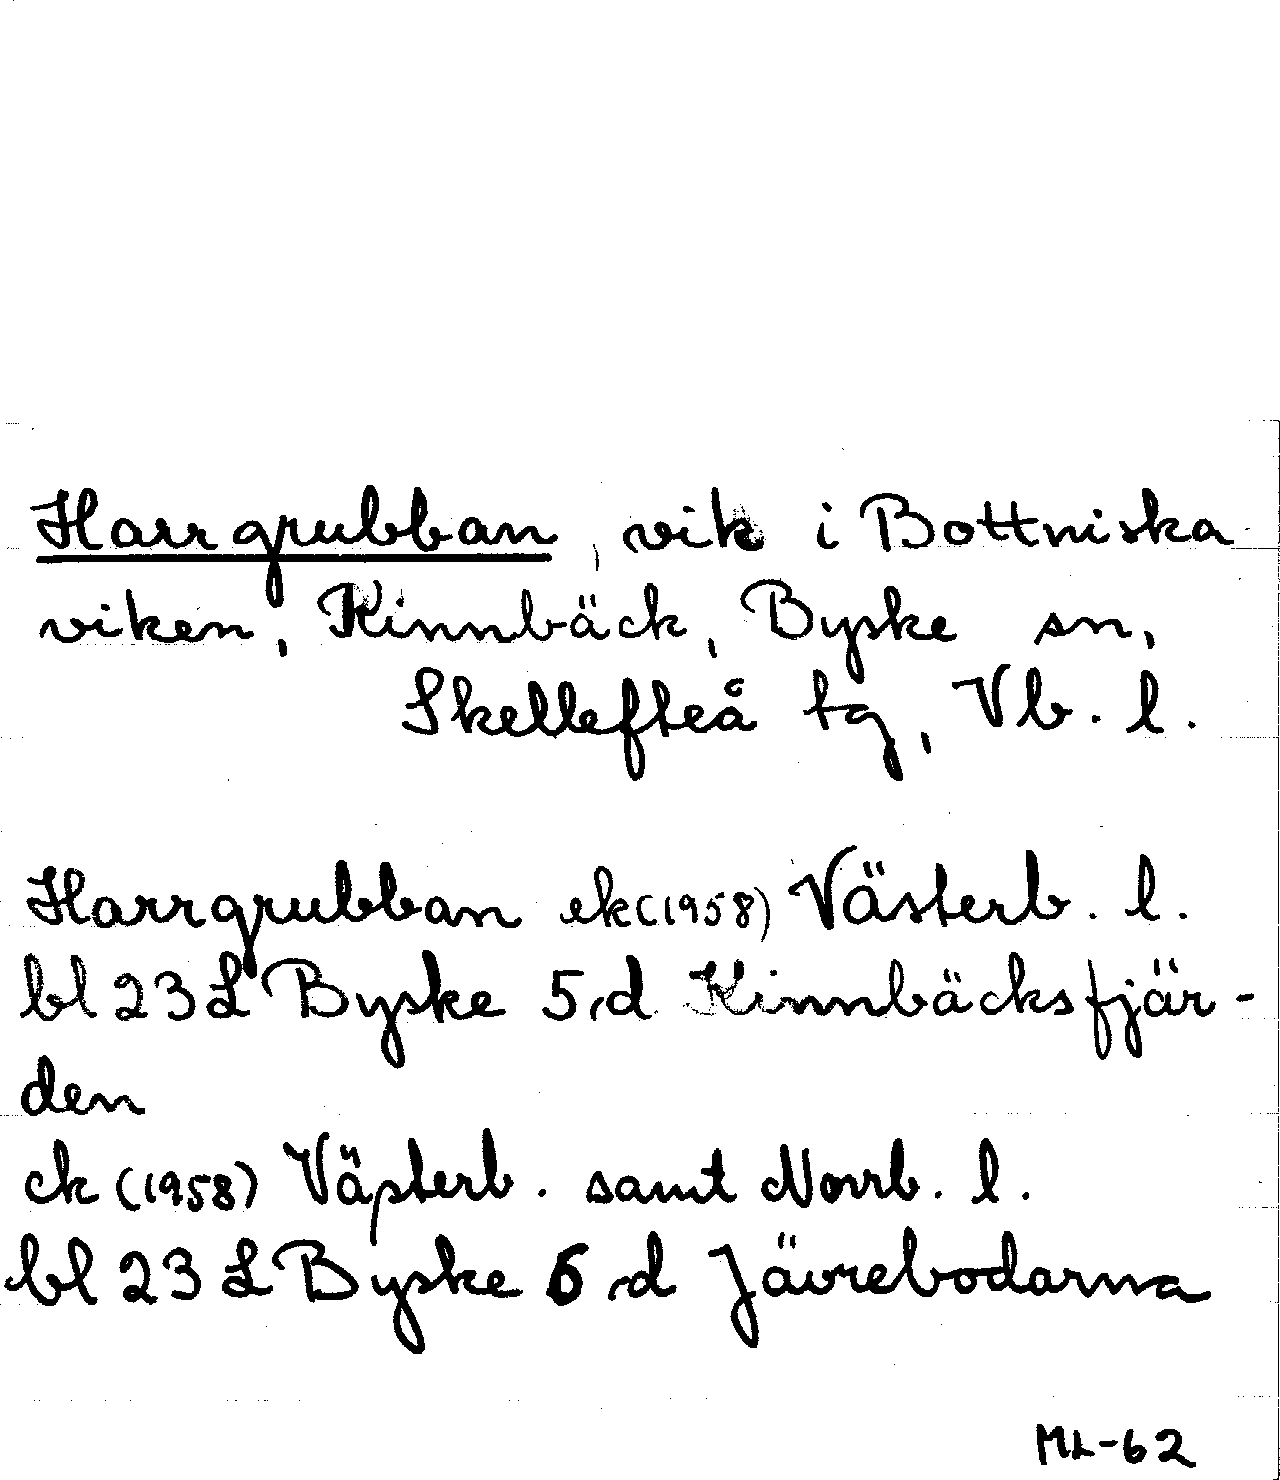 Harrgrubban, vik i Bottniska
viken, Kinnbäck, Byske sn,
Skellefteå tg, Vb. l.
Harrgrubban ek (1958) Västerb. l.
bl 23 L Byske 5 d Kinnbäcksfjär-
den
ek (1958) Västerb. samt Norrb. l.
bl 23 L Byske 6 d Jävrebodarna
ML-62